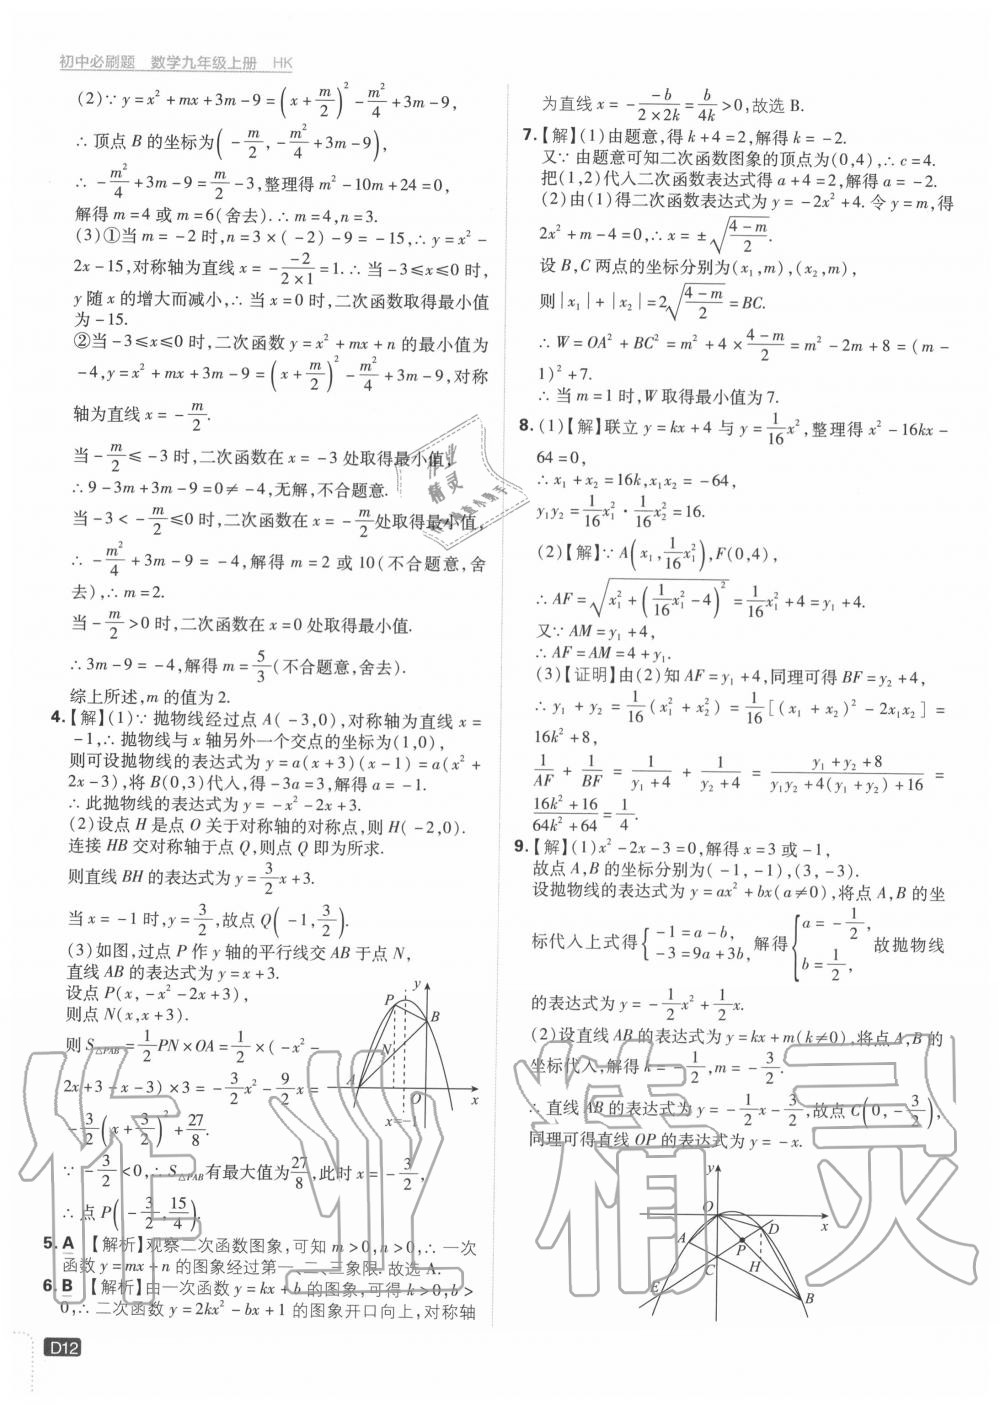 初中必刷题 数学九年级上册 HK
(2)∵y=x²+mx+3m-9=(x+m/2)²-m²/4+3m-9,
∴顶点B的坐标为(-m/2,-m²/4+3m-9),
∴-m²/4+3m-9=m/2-3,整理得m²-10m+24=0,
解得m=4或m=6(舍去).∴m=4,n=3.
(3)①当m=-2时,n=3×(-2)-9=-15,∴y=x²-
2x-15,对称轴为直线x=-(-2)/(2×1)=1.∴当-3≤x≤0时,
y随x的增大而减小,∴当x=0时,二次函数取得最小值
为-15.
②当-3≤x≤0时,二次函数y=x²+mx+n的最小值为
-4,y=x²+mx+3m-9=(x+m/2)²-m²/4+3m-9,对称
轴为直线x=-m/2.
当-m/2≤-3时,二次函数在x=-3处取得最小值,
∴9-3m+3m-9=0≠-4,无解,不合题意.
当-3<-m/2≤0时,二次函数在x=-m/2处取得最小值,
∴-m²/4+3m-9=-4,解得m=2或10(不合题意,舍
去),∴m=2.
当-m/2>0时,二次函数在x=0处取得最小值.
∴3m-9=-4,解得m=5/3(不合题意,舍去).
综上所述,m的值为2.
4.【解】(1)∵抛物线经过点A(-3,0),对称轴为直线x=
-1,∴抛物线与x轴另外一个交点的坐标为(1,0),
则可设抛物线的表达式为y=a(x+3)(x-1)=a(x²+
2x-3),将B(0,3)代入,得-3a=3,解得a=-1.
∴此抛物线的表达式为y=-x²-2x+3.
(2)设点H是点O关于对称轴的对称点,则H(-2,0).
连接HB交对称轴于点Q,则点Q即为所求.
则直线BH的表达式为y=3/2x+3.
当x=-1时,y=3/2,故点Q(-1,3/2).
(3)如图,过点P作y轴的平行线交AB于点N,
直线AB的表达式为y=x+3.
设点P(x,-x²-2x+3),
则点N(x,x+3).
则S△PAB=1/2PN×OA=1/2×(-x²-
2x+3-x-3)×3=-3/2x²-9/2x=
-3/2(x+3/2)²+27/8.
∵-3/2<0,∴S△PAB有最大值为27/8,此时x=-3/2,
∴点P(-3/2,15/4).
y
P
B
N
A
O
x
x=-1
5. A 【解析】观察二次函数图象,可知m>0,n>0,∴一次
函数y=mx+n的图象经过第一、二、三象限.故选A.
6. B 【解析】由一次函数y=kx+b的图象,可得k>0,b>
0,∴二次函数y=2kx²-bx+1的图象开口向上,对称轴
D12
为直线x=-(-b)/(2×2k)=b/4k>0,故选B.
7.【解】(1)由题意,得k+4=2,解得k=-2.
又∵由题意可知二次函数图象的顶点为(0,4),∴c=4.
把(1,2)代入二次函数表达式得a+4=2,解得a=-2.
(2)由(1)得二次函数表达式为y=-2x²+4.令y=m,得
2x²+m-4=0,∴x=±√((4-m)/2).
设B,C两点的坐标分别为(x₁,m),(x₂,m),
则|x₁|+|x₂|=2√((4-m)/2)=BC.
∴W=OA²+BC²=m²+4×(4-m)/2=m²-2m+8=(m-
1)²+7.
∴当m=1时,W取得最小值为7.
8.(1)【解】联立y=kx+4与y=1/16x²,整理得x²-16kx-
64=0,
∴x₁+x₂=16k,x₁x₂=-64,
y₁y₂=1/16x₁²·1/16x₂²=16.
(2)【解】∵A(x₁,1/16x₁²),F(0,4),
∴AF=√(x₁²+(1/16x₁²-4)²)=1/16x₁²+4=y₁+4.
又∵AM=y₁+4,
∴AF=AM=4+y₁.
(3)【证明】由(2)知AF=y₁+4,同理可得BF=y₂+4,
∴y₁+y₂=1/16(x₁²+x₂²)=1/16[(x₁+x₂)²-2x₁x₂]=
16k²+8,
1/AF+1/BF=1/(y₁+4)+1/(y₂+4)=(y₁+y₂+8)/(y₁y₂+4(y₁+y₂)+16)=
(16k²+16)/(64k²+64)=1/4.
9.【解】(1)x²-2x-3=0,解得x=3或-1,
故点A,B的坐标分别为(-1,-1),(3,-3).
设抛物线的表达式为y=ax²+bx(a≠0),将点A,B的坐
标代入上式得{-1=a-b,-3=9a+3b,解得{a=-1/2,b=1/2,故抛物线
的表达式为y=-1/2x²+1/2x.
(2)设直线AB的表达式为y=kx+m(k≠0).将点A,B的
坐标代入,解得k=-1/2,m=-3/2.
∴直线AB的表达式为y=-1/2x-3/2,故点C(0,-3/2),
同理可得直线OP的表达式为y=-x.
y
O
x
D
A
P
C
H
E
B
作业精灵